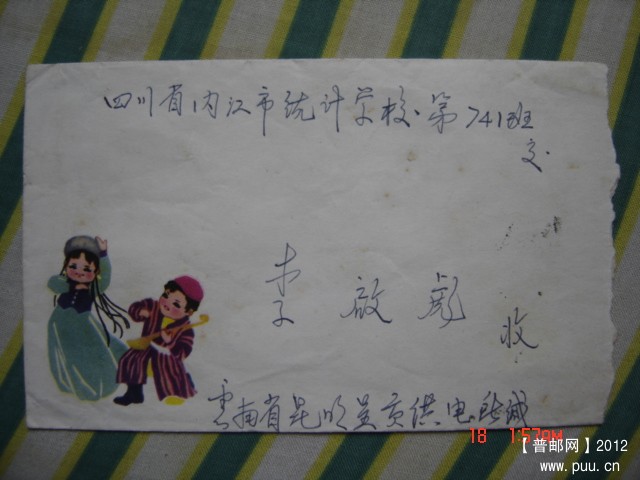 四川省内江市统计学校·第741班
交
李 啟彪
收
云南省昆明呈贡供电所缄
18 1:57PM
【普邮网】2012
www.puu.cn